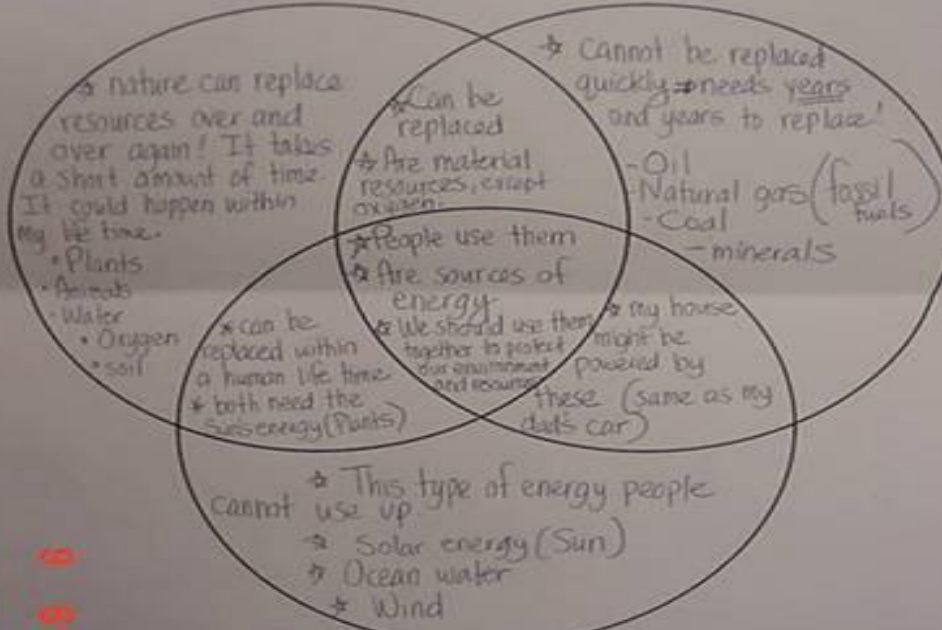 ☆ nature can replace
resources over and
over again! It takes
a short amount of time.
It could happen within
my life time.
• Plants
• Animals
• Water
• Oxygen
• soil
☆ Can be
replaced
☆ Are material
resources, except
oxygen.
☆ Cannot be replaced
quickly → needs years
and years to replace!
- Oil
- Natural gas (fossil
fuels)
- Coal
- minerals
☆ People use them
☆ Are sources of
energy
☆ We should use them
together to protect
our environment
and resources
* can be
replaced within
a human life time
* both need the
sun's energy (Plants)
☆ my house
might be
powered by
these (same as my
dad's car)
☆ This type of energy people
cannot use up
☆ Solar energy (Sun)
☆ Ocean water
☆ Wind